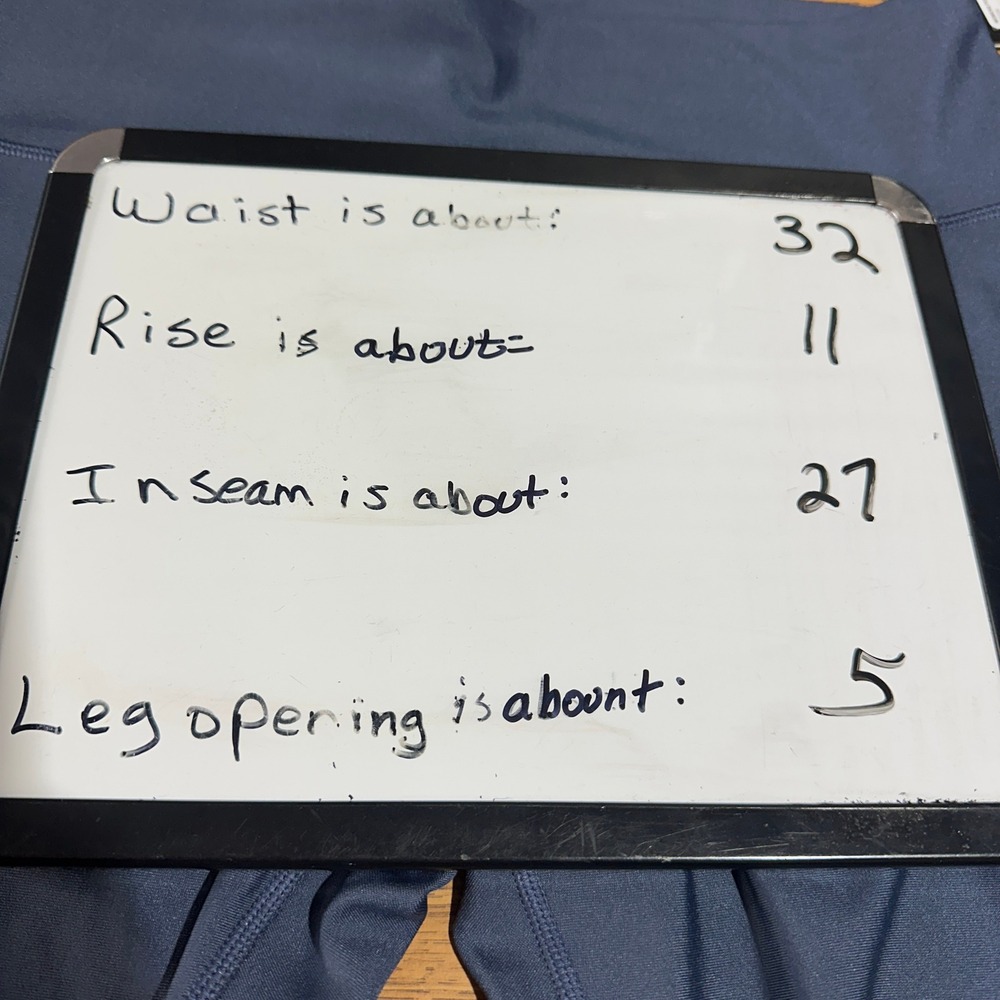 Waist is about: 32
Rise is about= 11
Inseam is about: 27
Leg opening is abount: 5